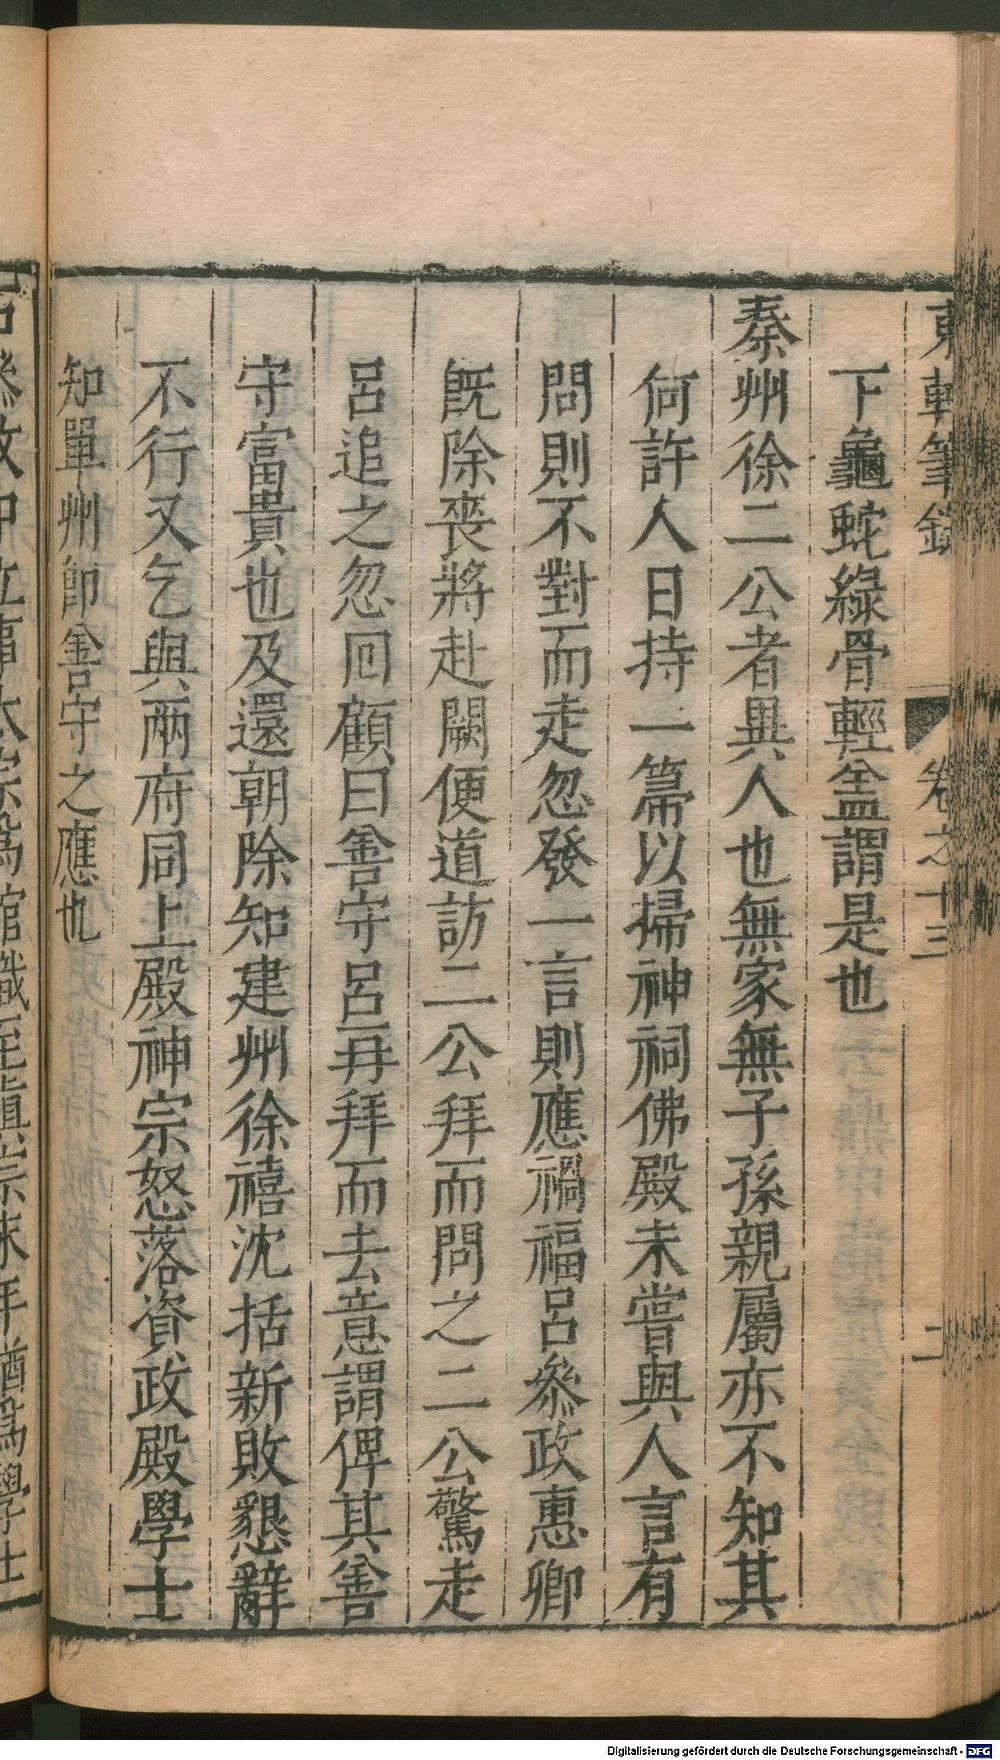 東軒筆錄 卷之十三 二
下龜蛇綠骨輕盖謂是也
秦州徐二公者異人也無家無子孫親屬亦不知其
何許人日持一箒以掃神祠佛殿未嘗與人言有
問則不對而走忽發一言則應禍福呂叅政惠卿
旣除喪將赴闕便道訪二公拜而問之二公驚走
呂追之忽囘顧曰善守呂再拜而去意謂俾其善
守富貴也及還朝除知建州徐禧沈括新敗懇辭
不行又乞與兩府同上殿神宗怒落資政殿學士
知單州卽善守之應也
Digitalisierung gefördert durch die Deutsche Forschungsgemeinschaft - DFG